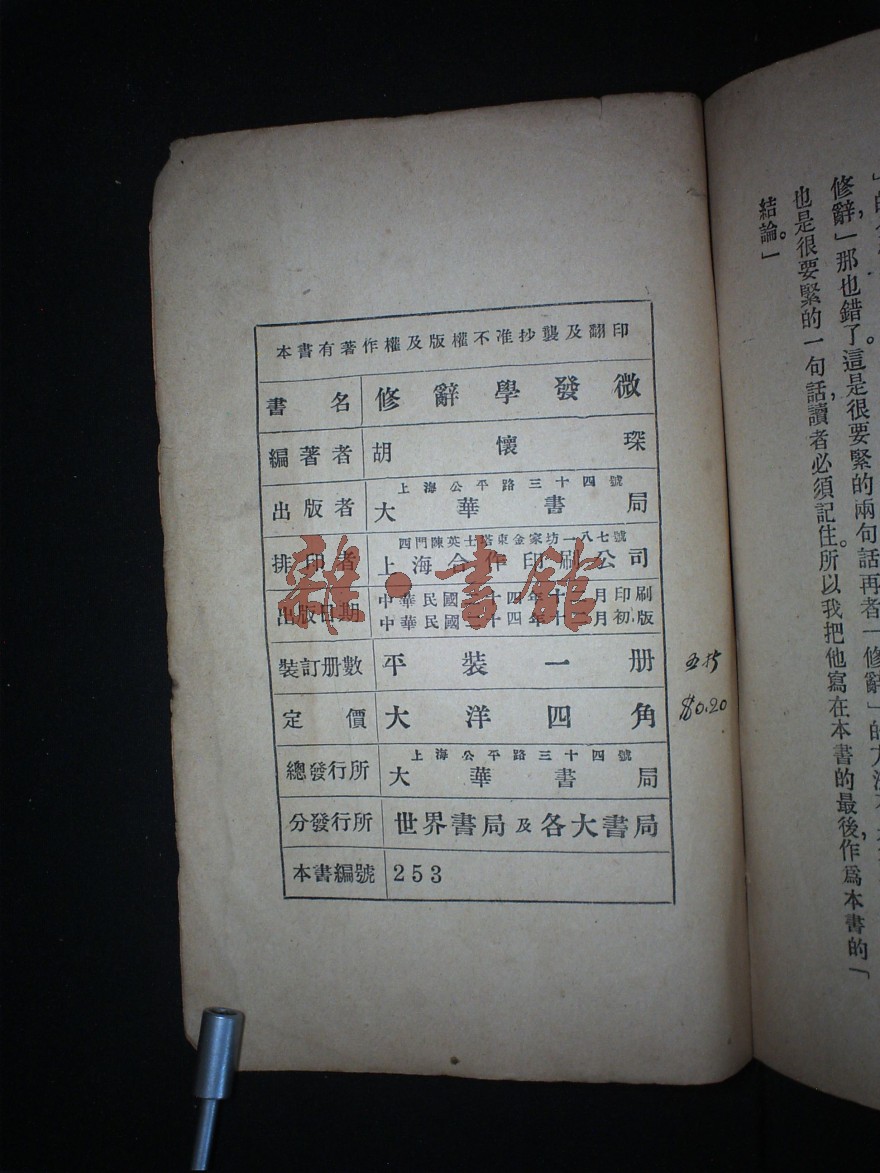 本書有著作權及版權不准抄襲及翻印
書名 修辭學發微
編著者 胡懷琛
出版者 上海公平路三十四號
大華書局
排印者 西門陳英士塔東金家坊一八七號
上海合作印刷公司
出版日期 中華民國二十四年十二月印刷
中華民國二十四年十二月初版
裝訂册數 平裝一册
定價 大洋四角
總發行所 上海公平路三十四號
大華書局
分發行所 世界書局及各大書局
本書編號 253
五折
$0.20
雜·書館
修辭,」那也錯了。這是很要緊的兩句話再者「修辭」的
也是很要緊的一句話,讀者必須記住。所以我把他寫在本書的最後,作爲本書的「
結論。」